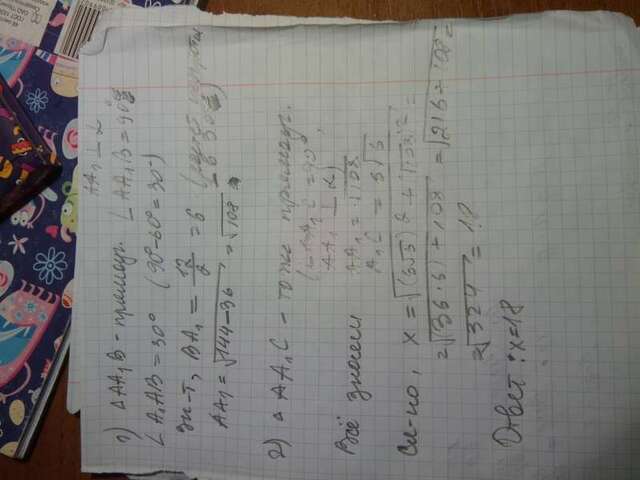 AA₁ ⊥ α
1) △AA₁B - прямоуг. (∠AA₁B = 90°)
∠A₁AB = 30° (90°-60° = 30°)
Зн-т, BA₁ = 12/2 = 6 (катет
30°)
AA₁ = √144-36 = √108
2) △AA₁C - тоже прямоуг.
(∠AA₁C = 90°,
AA₁ ⊥ α)
Всё знаем AA₁ = √108
A₁C =
Сл-но, x =
= √(36·6)+108 = √216+108 =
= √324 = 18
Ответ: x=18